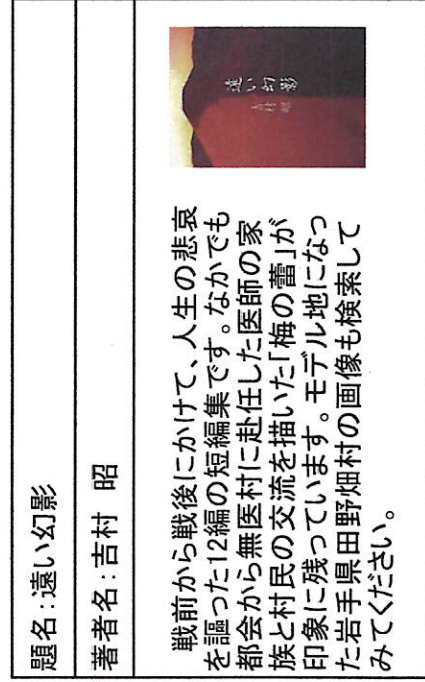 題名:遠い幻影
著者名:吉村 昭
戦前から戦後にかけて、人生の悲哀
を謳った12編の短編集です。なかでも
都会から無医村に赴任した医師の家
族と村民の交流を描いた「梅の蕾」が
印象に残っています。モデル地になっ
た岩手県田野畑村の画像も検索して
みてください。
遠い幻影
吉村 昭